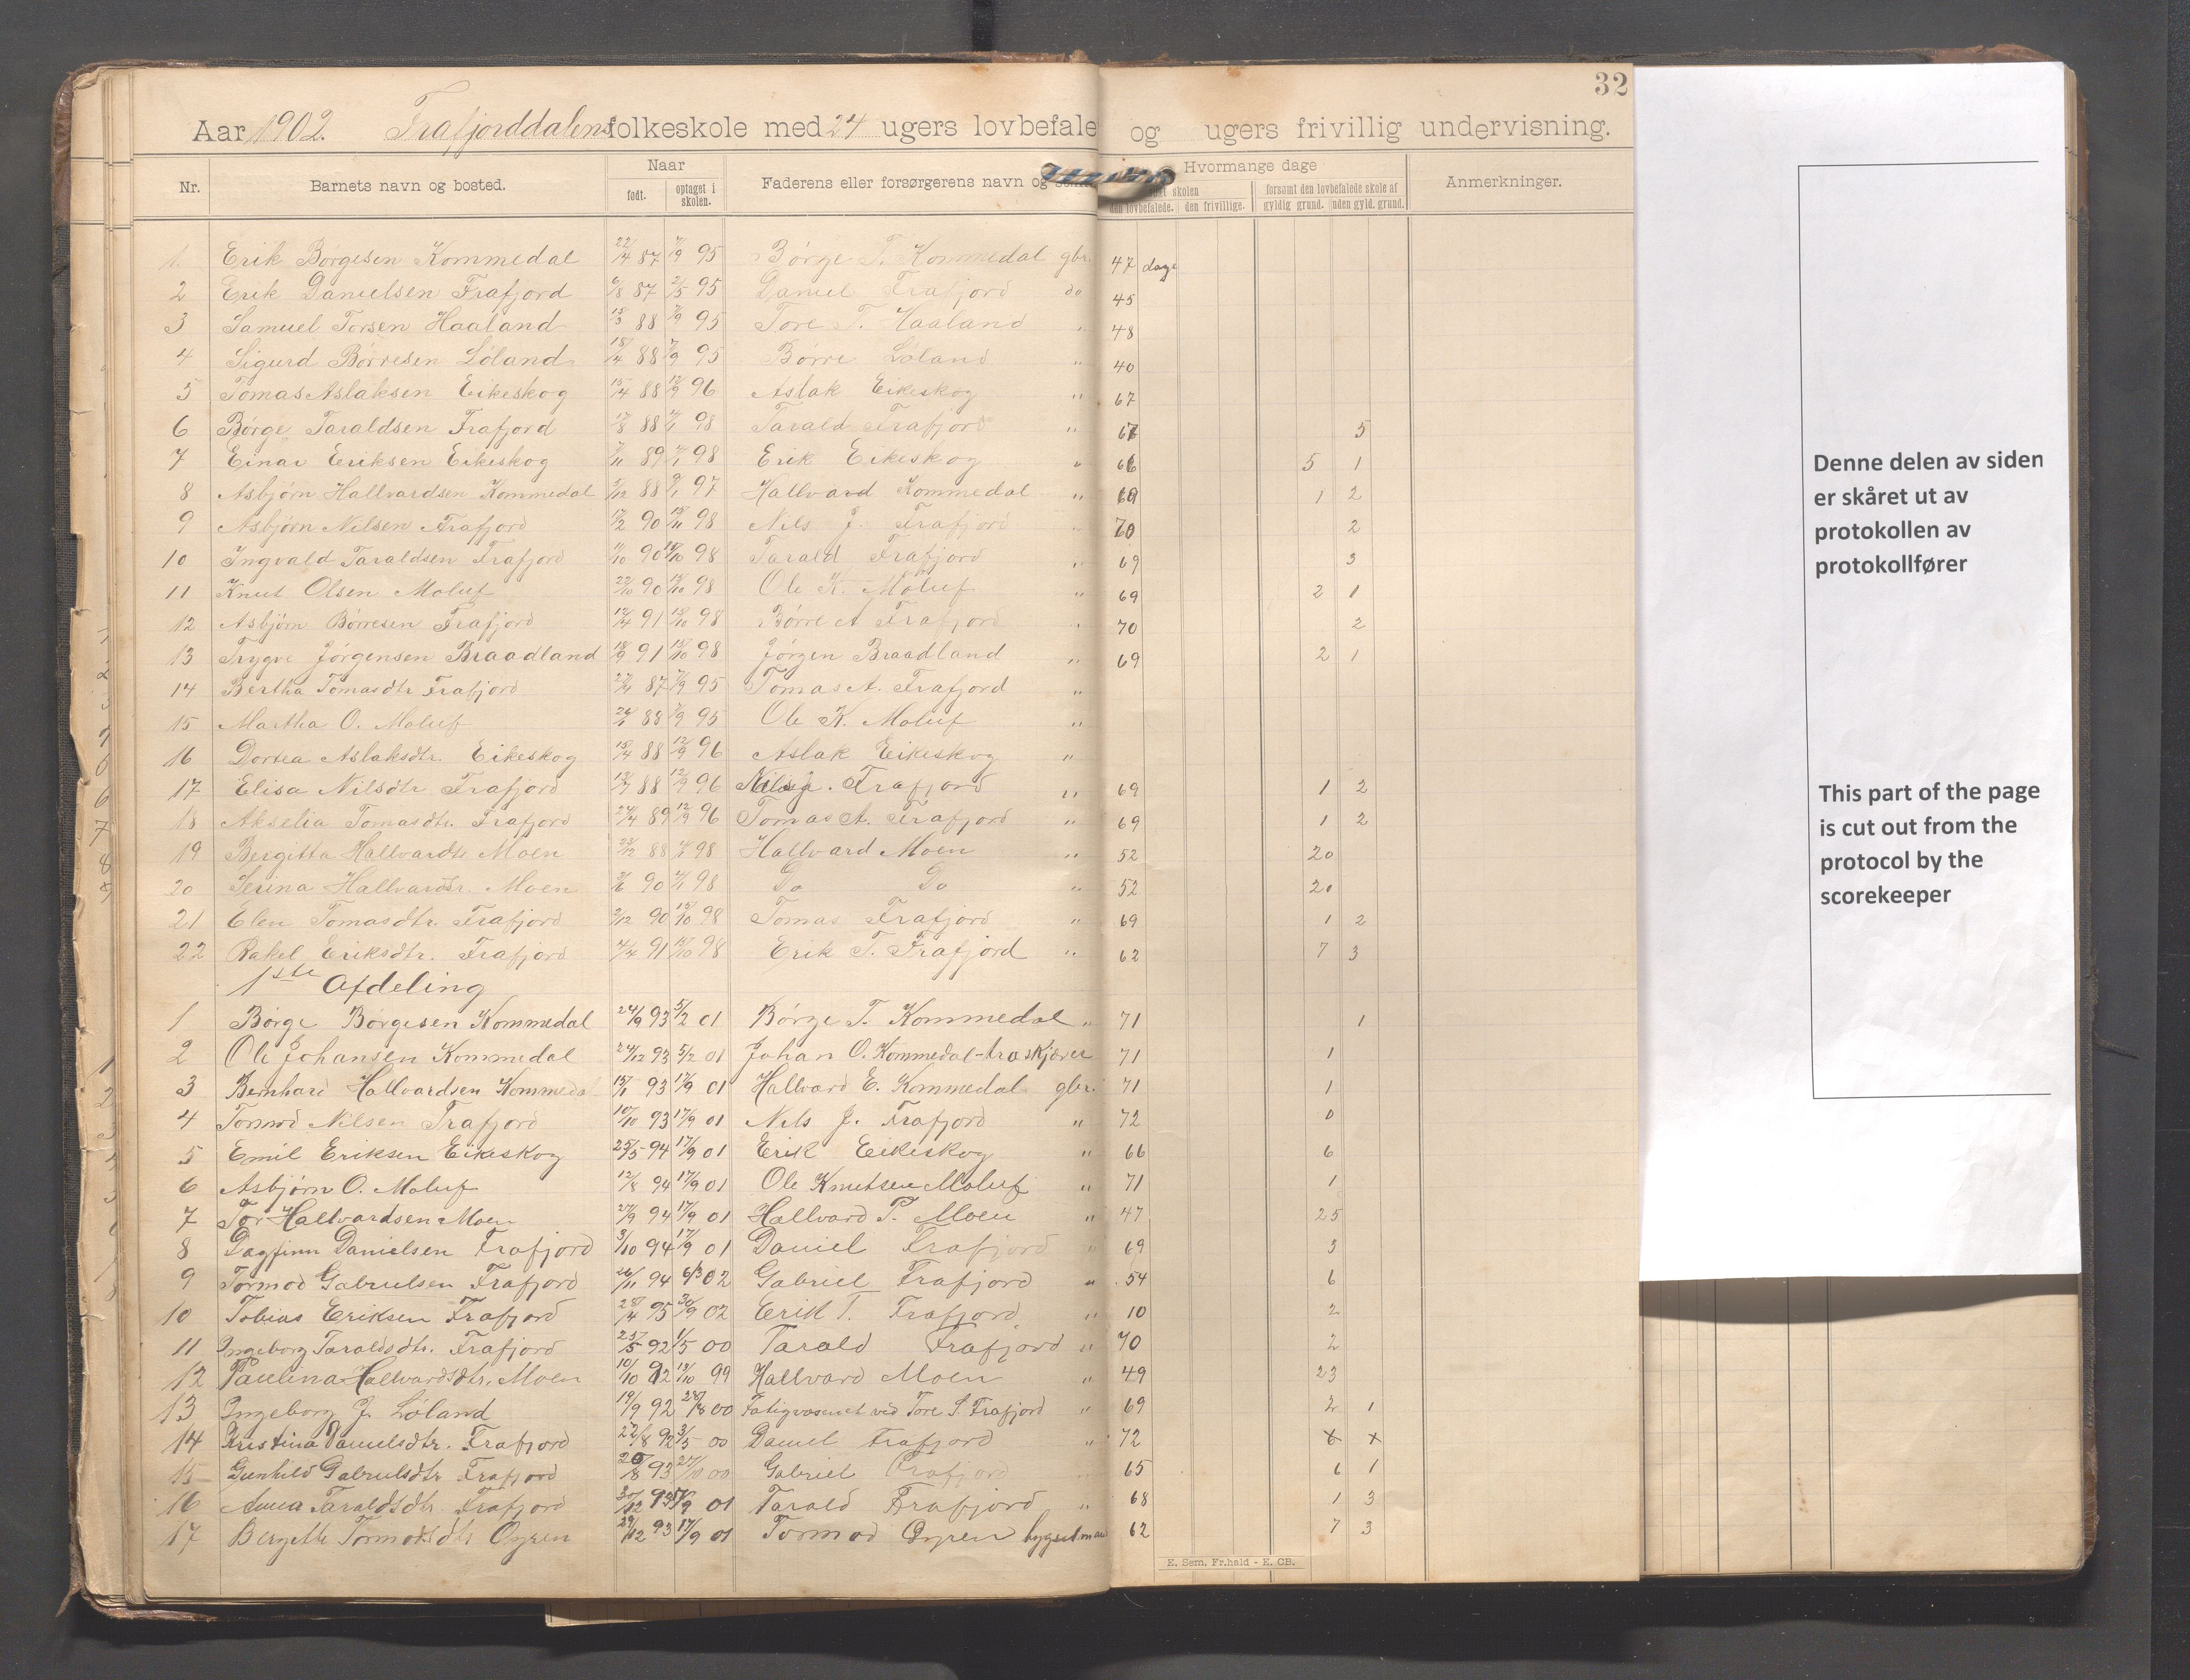 32
Aar 1902. Frafjorddalens folkeskole med 24 ugers lovbefale og ugers frivillig undervisning.
Nr. Barnets navn og bosted. Naar født. optaget i skolen. Faderens eller forsørgerens navn og Hvormange dage skolen den lovbefalede. den frivillige. forsømt den lovbefalede skole af gyldig grund. uden gyld. grund. Anmerkninger.
1. Erik Børgesen Kommedal 22/4 87 7/9 95 Børge T. Kommedal gbr. 47 dage
2 Erik Danielsen Frafjord 6/8 87 2/5 95 Daniel Frafjord do 45
3 Samuel Torsen Haaland 18/3 88 7/9 95 Tore T. Haaland " 48
4 Sigurd Børresen Løland 18/4 88 7/9 95 Børre Løland " 40
5 Tomas Aslaksen Eikeskog 15/4 88 12/9 96 Aslak Eikeskog " 67
6 Børge Taraldsen Frafjord 88 98 Tarald Frafjord " 67 5
7 Einar Eriksen Eikeskog 7/11 89 98 Erik Eikeskog " 66 5 1
8 Asbjørn Hallvardsen Kommedal 88 97 Hallvard Kommedal " 69 1 2
9 Asbjørn Nilsen Frafjord 17/2 90 98 Nils J. Frafjord " 70 2
10 Ingvald Taraldsen Frafjord 11/10 90 98 Tarald Frafjord " 69 3
11 Knut Olsen Moluf 22/10 90 98 Ole K. Moluf " 69 2 1
12 Asbjørn Børresen Frafjord 91 98 Børre A Frafjord " 70 2
13 Trygve Jørgensen Braadland 18/9 91 98 Jørgen Braadland " 69 2 1
14 Bertha Tomasdtr Frafjord 87 7/9 95 Tomas A. Frafjord "
15 Martha O. Moluf 88 7/9 95 Ole K. Moluf "
16 Dortea Aslaksdtr. Eikeskog 15/4 88 12/9 96 Aslak Eikeskog "
17 Elisa Nilsdtr Frafjord 88 12/9 96 Nils J. Frafjord " 69 1 2
18 Akselia Tomasdtr. Frafjord 24/4 89 12/9 96 Tomas A. Frafjord " 69 1 2
19 Bergitta Hallvardtr Moen 88 98 Hallvard Moen " 52 20
20 Serina Hallvardtr. Moen 90 98 Do Do " 52 20
21 Elen Tomasdtr. Frafjord 2/12 90 98 Tomas Frafjord " 69 1 2
22 Rakel Eriksdtr. Frafjord 91 98 Erik T. Frafjord " 62 7 3
1ste Afdeling
1 Børge Børgesen Kommedal 24/9 93 5/2 01 Børge T. Kommedal " 71 1
2 Ole Johansen Kommedal 24/12 93 5/2 01 Johan O. Kommedal 71 1
3 Bernhard Hallvardsen Kommedal 93 17/9 01 Hallvard E. Kommedal gbr. 71 1
4 Tormod Nilsen Frafjord 10/10 93 17/9 01 Nils J. Frafjord " 72 0
5 Emil Eriksen Eikeskog 25/5 94 17/9 01 Erik Eikeskog " 66 6
6 Asbjørn O. Moluf 12/8 94 17/9 01 Ole Knutsen Moluf " 71 1
7 Tor Hallvardsen Moen 27/9 94 17/9 01 Hallvard P. Moen " 47 25
8 Dagfinn Danielsen Frafjord 3/10 94 17/9 01 Daniel Frafjord " 69 3
9 Tormod Gabrielsen Frafjord 26/11 94 6/3 02 Gabriel Frafjord " 54 6
10 Tobias Eriksen Frafjord 28/4 95 30/9 02 Erik T. Frafjord " 10 2
11 Ingeborg Taraldsdtr. Frafjord 25/5 92 1/5 00 Tarald Frafjord " 70 2
12 Paulina Hallvardsdtr. Moen 10/10 92 99 Hallvard Moen " 49 23
13 Ingeborg J. Løland 19/9 92 28/8 00 Fatigvæsenet ved Tore S. Frafjord " 69 2 1
14 Kristina Danielsdtr. Frafjord 27/8 92 3/5 00 Daniel Frafjord " 72 x x
15 Gunhild Gabrielsdtr Frafjord 93 00 Gabriel Frafjord 65 6 1
16 Anna Taraldsdtr. Frafjord 30/12 93 01 Tarald Frafjord " 68 1 3
17 Bergitte Tormodsdtr Øyren 29/12 93 17/9 01 Tormod Øyren bygselmand 62 7 3
E. Sem, Fr.hald - E. CB.
Denne delen av siden
er skåret ut av
protokollen av
protokollfører
This part of the page
is cut out from the
protocol by the
scorekeeper